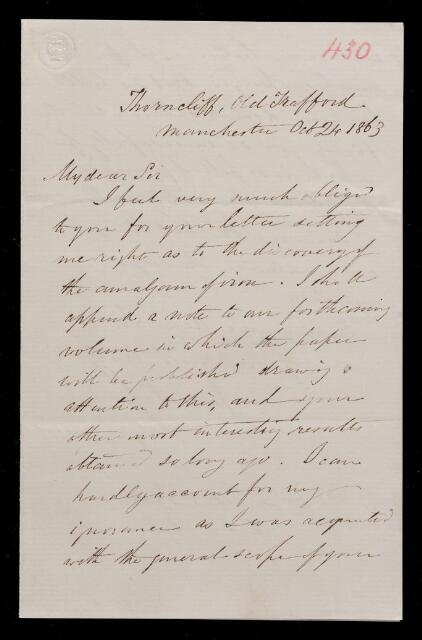 430
Thorncliff, Old Trafford.
Manchester Oct 24 1863
My dear Sir
I feel very much oblig'd
to you for your letter setting
me right as to the discovery of
the amalgam of iron. I shall
append a note to our forthcoming
volume in which the paper
will be publish'd drawing
attention to this, and your
other most interesting results
obtain'd so long ago. I can
hardly account for my
ignorance as I was acquainted
with the general scope of your